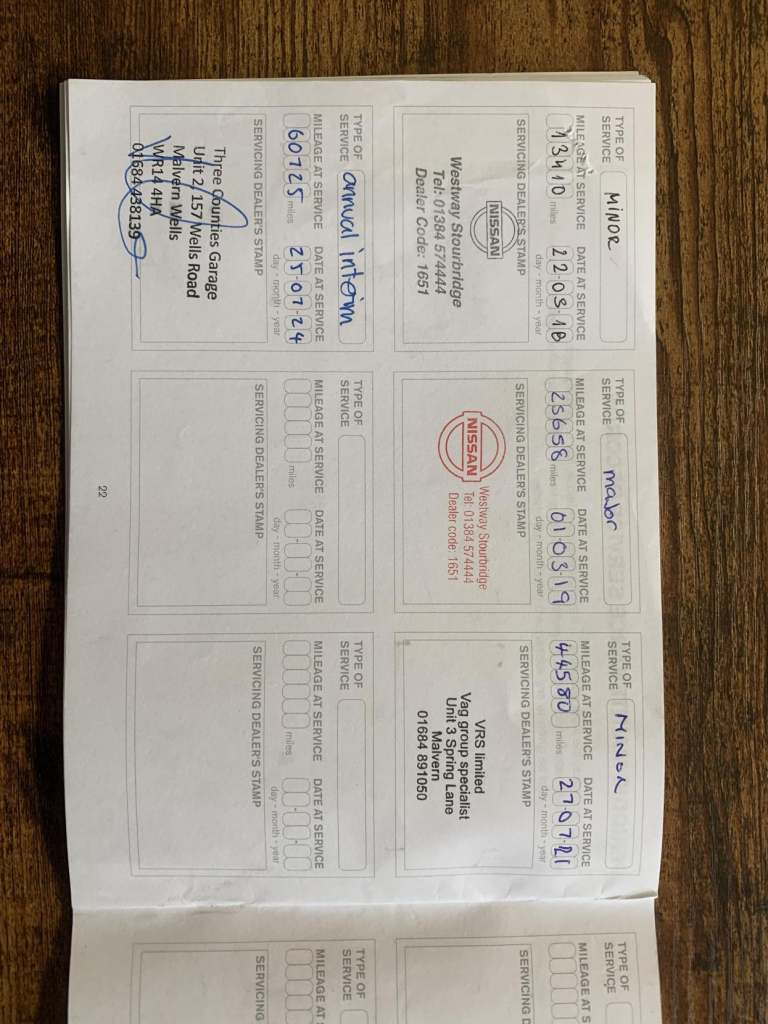 TYPE OF SERVICE MINOR
MILEAGE AT SERVICE DATE AT SERVICE
13410 miles 22-03-18
day - month - year
SERVICING DEALER'S STAMP
NISSAN
Westway Stourbridge
Tel: 01384 574444
Dealer Code: 1651
TYPE OF SERVICE major
MILEAGE AT SERVICE DATE AT SERVICE
25658 miles 01-03-19
day - month - year
SERVICING DEALER'S STAMP
NISSAN
Westway Stourbridge
Tel: 01384 574444
Dealer code: 1651
TYPE OF SERVICE MINOR
MILEAGE AT SERVICE DATE AT SERVICE
44580 miles 27-07-21
day - month - year
SERVICING DEALER'S STAMP
VRS limited
Vag group specialist
Unit 3 Spring Lane
Malvern
01684 891050
TYPE OF SERVICE annual interim
MILEAGE AT SERVICE DATE AT SERVICE
60725 miles 25-07-24
day - month - year
SERVICING DEALER'S STAMP
Three Counties Garage
Unit 2, 157 Wells Road
Malvern Wells
WR14 4HA
01684 438139
TYPE OF SERVICE
MILEAGE AT SERVICE DATE AT SERVICE
miles
day - month - year
SERVICING DEALER'S STAMP
TYPE OF SERVICE
MILEAGE AT SERVICE DATE AT SERVICE
miles
day - month - year
SERVICING DEALER'S STAMP
22
TYPE OF SERVICE
MILEAGE AT S
SERVICING D
TYPE OF SERVICE
MILEAGE AT
SERVICING